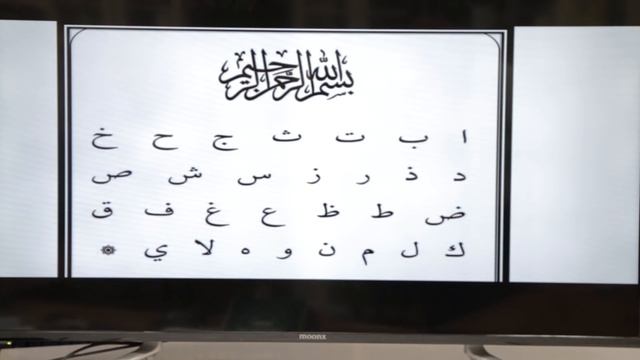 بسم الله الرحمن الرحيم
ا ب ت ث ج ح خ
د ذ ر ز س ش ص
ض ط ظ ع غ ف ق
ك ل م ن و ه لا ي
moonx